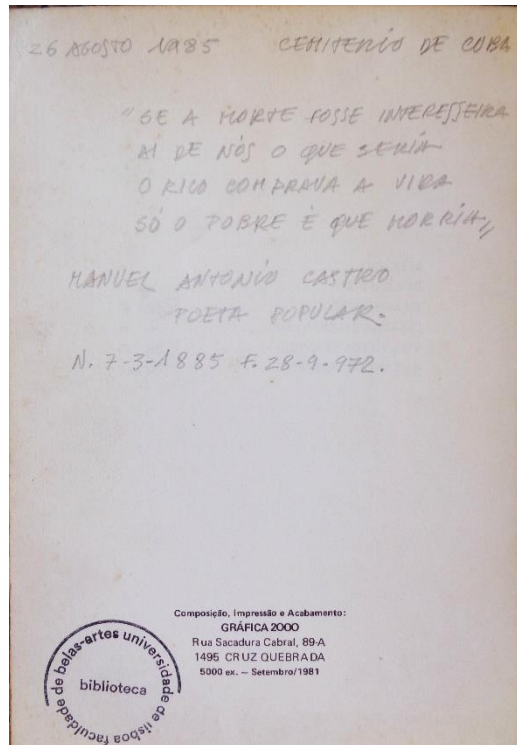 26 AGOSTO 1985 CEMITERIO DE CUBA
"SE A MORTE FOSSE INTERESSEIRA
AI DE NÓS O QUE SERIA
O RICO COMPRAVA A VIDA
SÓ O POBRE É QUE MORRIA"
MANUEL ANTONIO CASTRO
POETA POPULAR.
N. 7-3-1885 F. 28-9-972.
Composição, Impressão e Acabamento:
GRÁFICA 2000
Rua Sacadura Cabral, 89-A
1495 CRUZ QUEBRADA
5000 ex. — Setembro/1981
faculdade de belas-artes universidade de lisboa
biblioteca